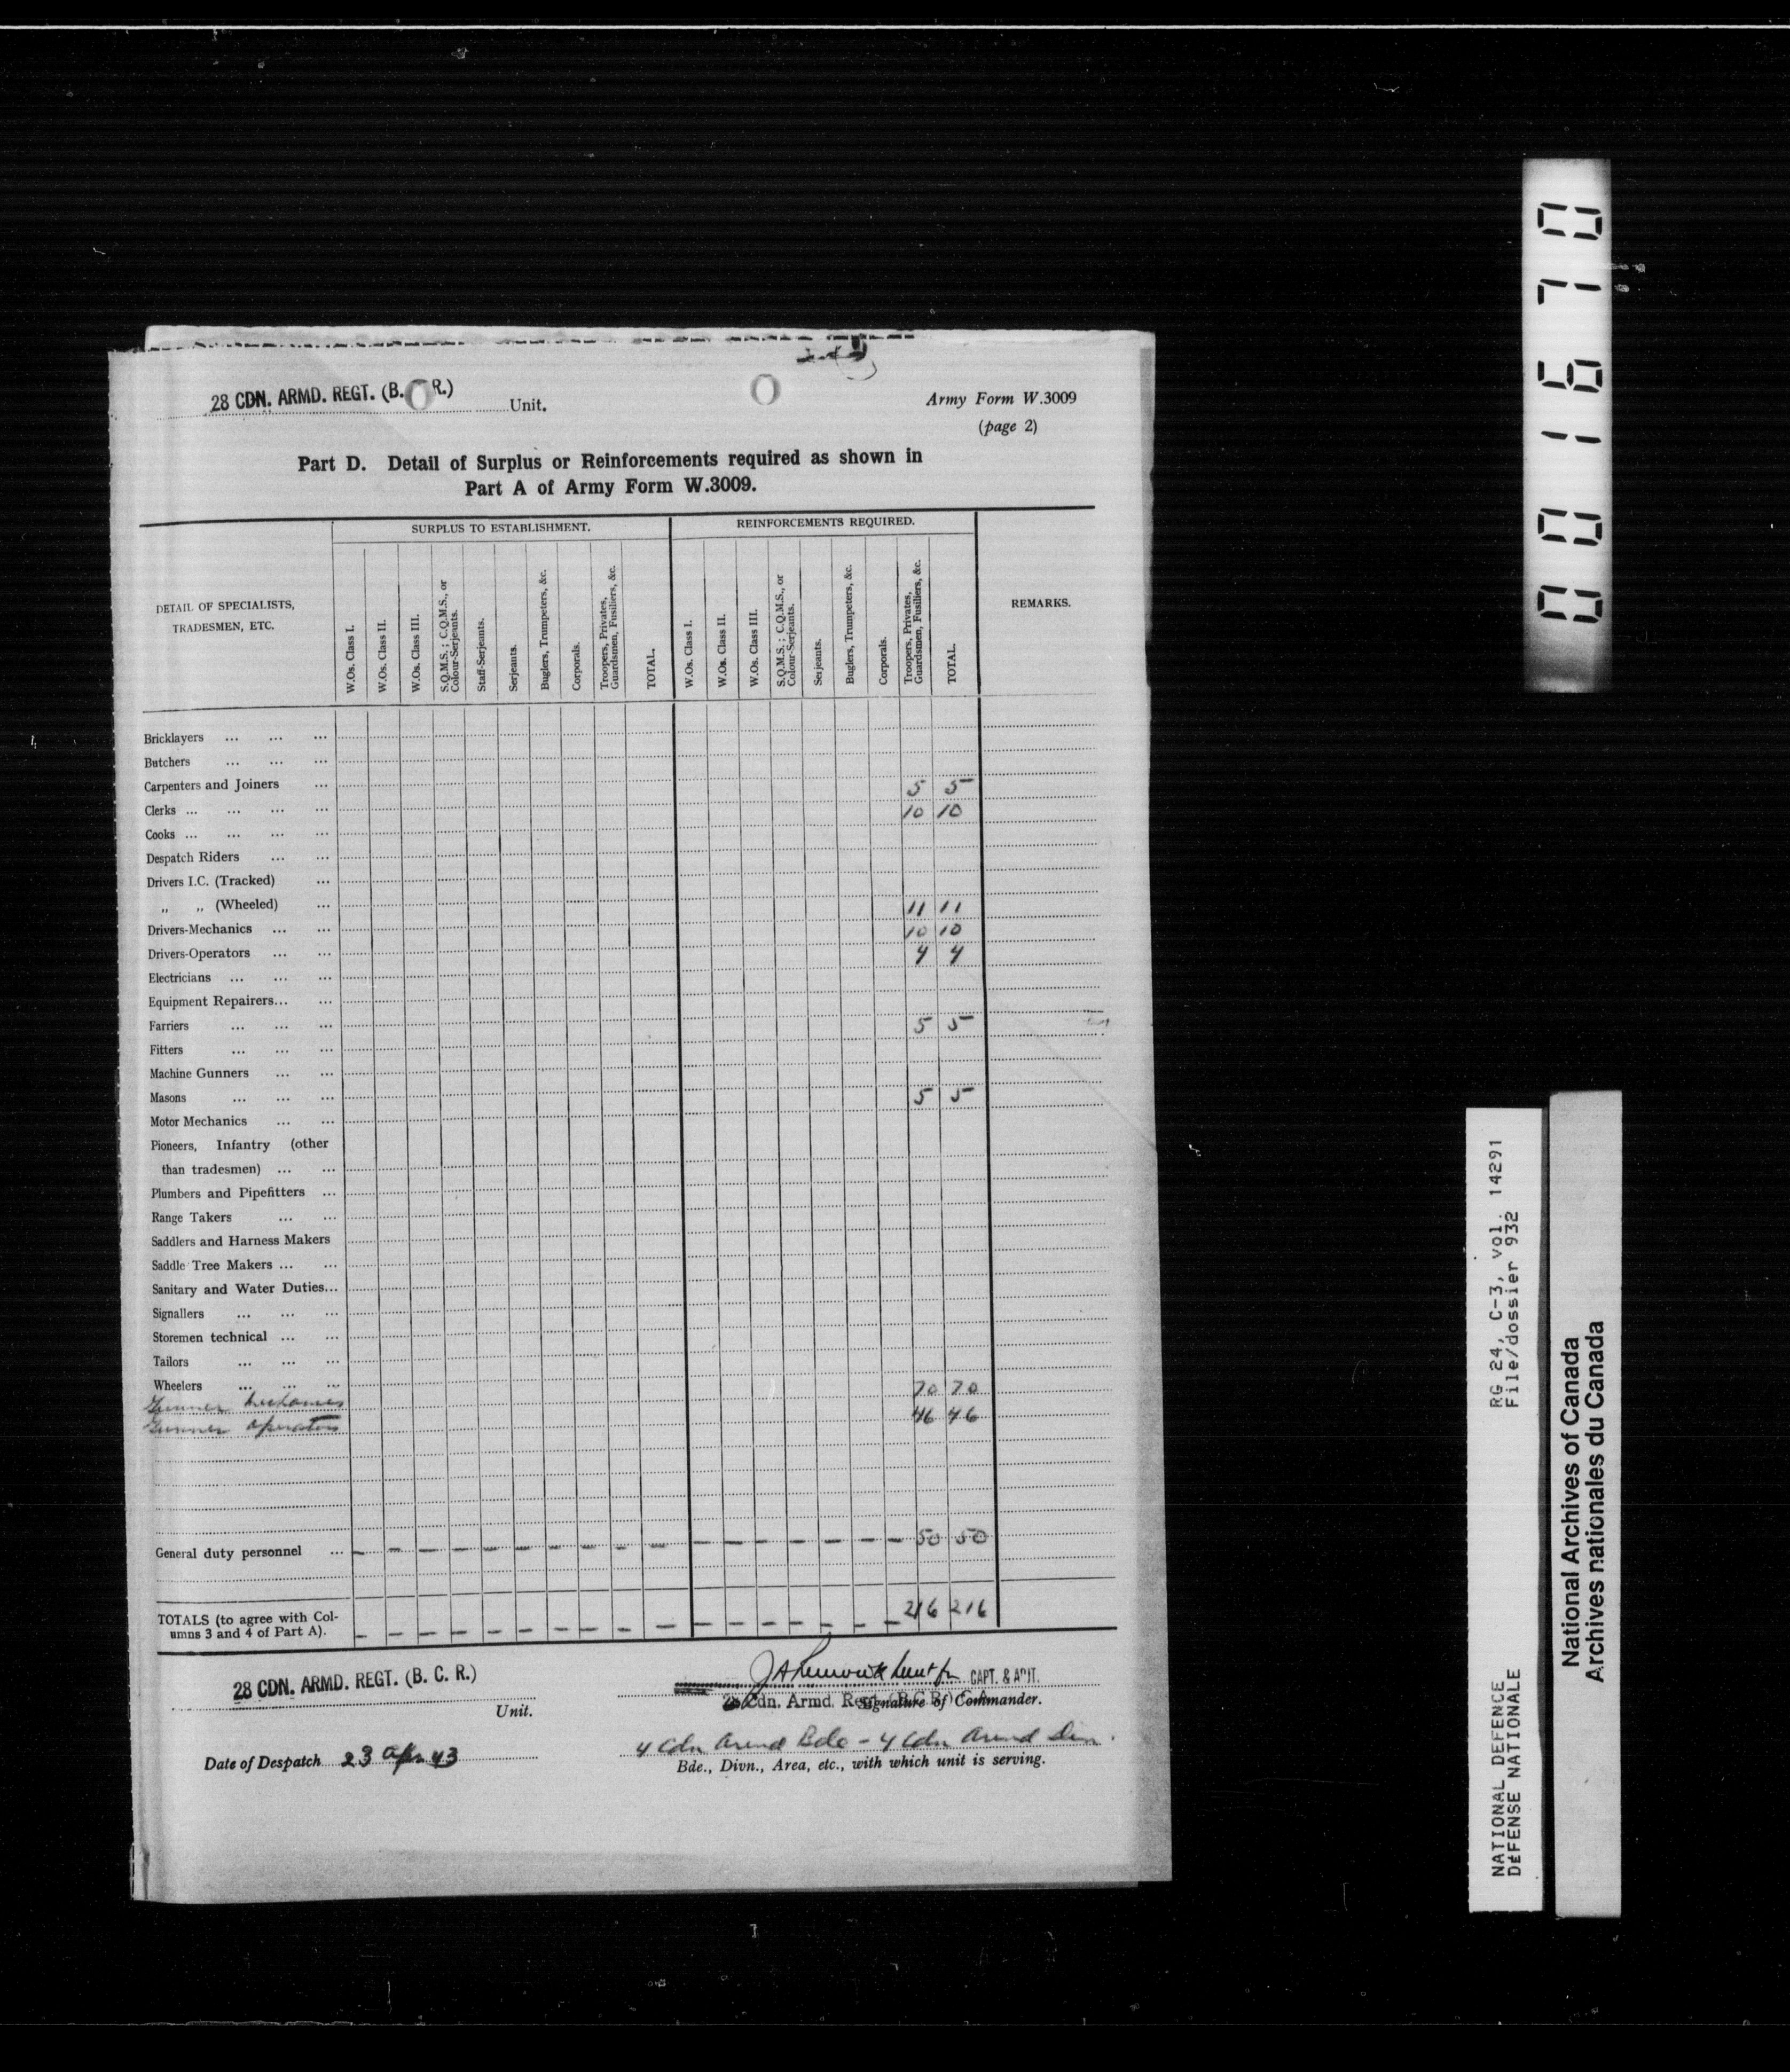 28 CDN. ARMD. REGT. (B. C. R.) Unit.
Army Form W.3009
(page 2)
Part D. Detail of Surplus or Reinforcements required as shown in
Part A of Army Form W.3009.
DETAIL OF SPECIALISTS, TRADESMEN, ETC.
SURPLUS TO ESTABLISHMENT.
W.Os. Class I.
W.Os. Class II.
W.Os. Class III.
S.Q.M.S.; C.Q.M.S., or Colour-Serjeants.
Staff-Serjeants.
Serjeants.
Buglers, Trumpeters, &c.
Corporals.
Troopers, Privates, Guardsmen, Fusiliers, &c.
TOTAL.
REINFORCEMENTS REQUIRED.
W.Os. Class I.
W.Os. Class II.
W.Os. Class III.
S.Q.M.S.; C.Q.M.S., or Colour-Serjeants.
Serjeants.
Buglers, Trumpeters, &c.
Corporals.
Troopers, Privates, Guardsmen, Fusiliers, &c.
TOTAL.
REMARKS.
Bricklayers ... ... ...
Butchers ... ... ...
Carpenters and Joiners ... 5 5
Clerks ... ... ... ... 10 10
Cooks ... ... ... ...
Despatch Riders ... ...
Drivers I.C. (Tracked) ...
„ „ (Wheeled) ... 11 11
Drivers-Mechanics ... ... 10 10
Drivers-Operators ... ... 4 4
Electricians ... ... ...
Equipment Repairers... ...
Farriers ... ... ... 5 5
Fitters ... ... ...
Machine Gunners ... ...
Masons ... ... ... 5 5
Motor Mechanics ... ...
Pioneers, Infantry (other
than tradesmen) ... ...
Plumbers and Pipefitters ...
Range Takers ... ...
Saddlers and Harness Makers
Saddle Tree Makers ... ...
Sanitary and Water Duties...
Signallers ... ... ...
Storemen technical ... ...
Tailors ... ... ...
Wheelers ... ... ... 70 70
Gunner
Gunner Operators 46 46
General duty personnel ... — — — — — — — — — — — — — — — — — 50 50
TOTALS (to agree with Col-
umns 3 and 4 of Part A). — — — — — — — — — — — — — — — — — 216 216
28 CDN. ARMD. REGT. (B. C. R.)
Unit.
Lieut for CAPT. & ADJT.
Cdn. Armd. Regt.
Signature of Commander.
Date of Despatch 23 Apr 43
4 Cdn Armd Bde - 4 Cdn Armd Div.
Bde., Divn., Area, etc., with which unit is serving.
001670
RG 24, C-3, vol. 14291
File/dossier 932
NATIONAL DEFENCE
DÉFENSE NATIONALE
National Archives of Canada
Archives nationales du Canada